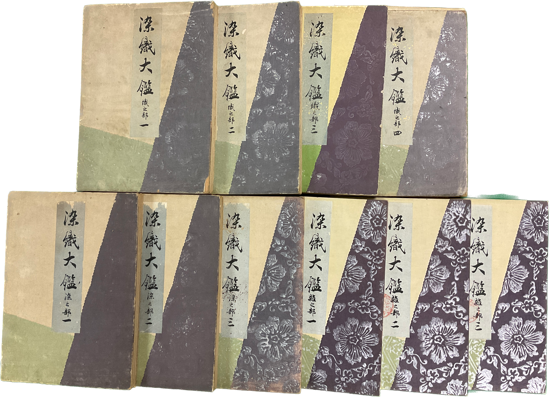 染織大鑑 織之部 一
染織大鑑 織之部 二
染織大鑑 織之部 三
染織大鑑 織之部 四
染織大鑑 染之部 一
染織大鑑 染之部 二
染織大鑑 染之部 三
染織大鑑 雑之部 一
染織大鑑 雑之部 二
染織大鑑 雑之部 三